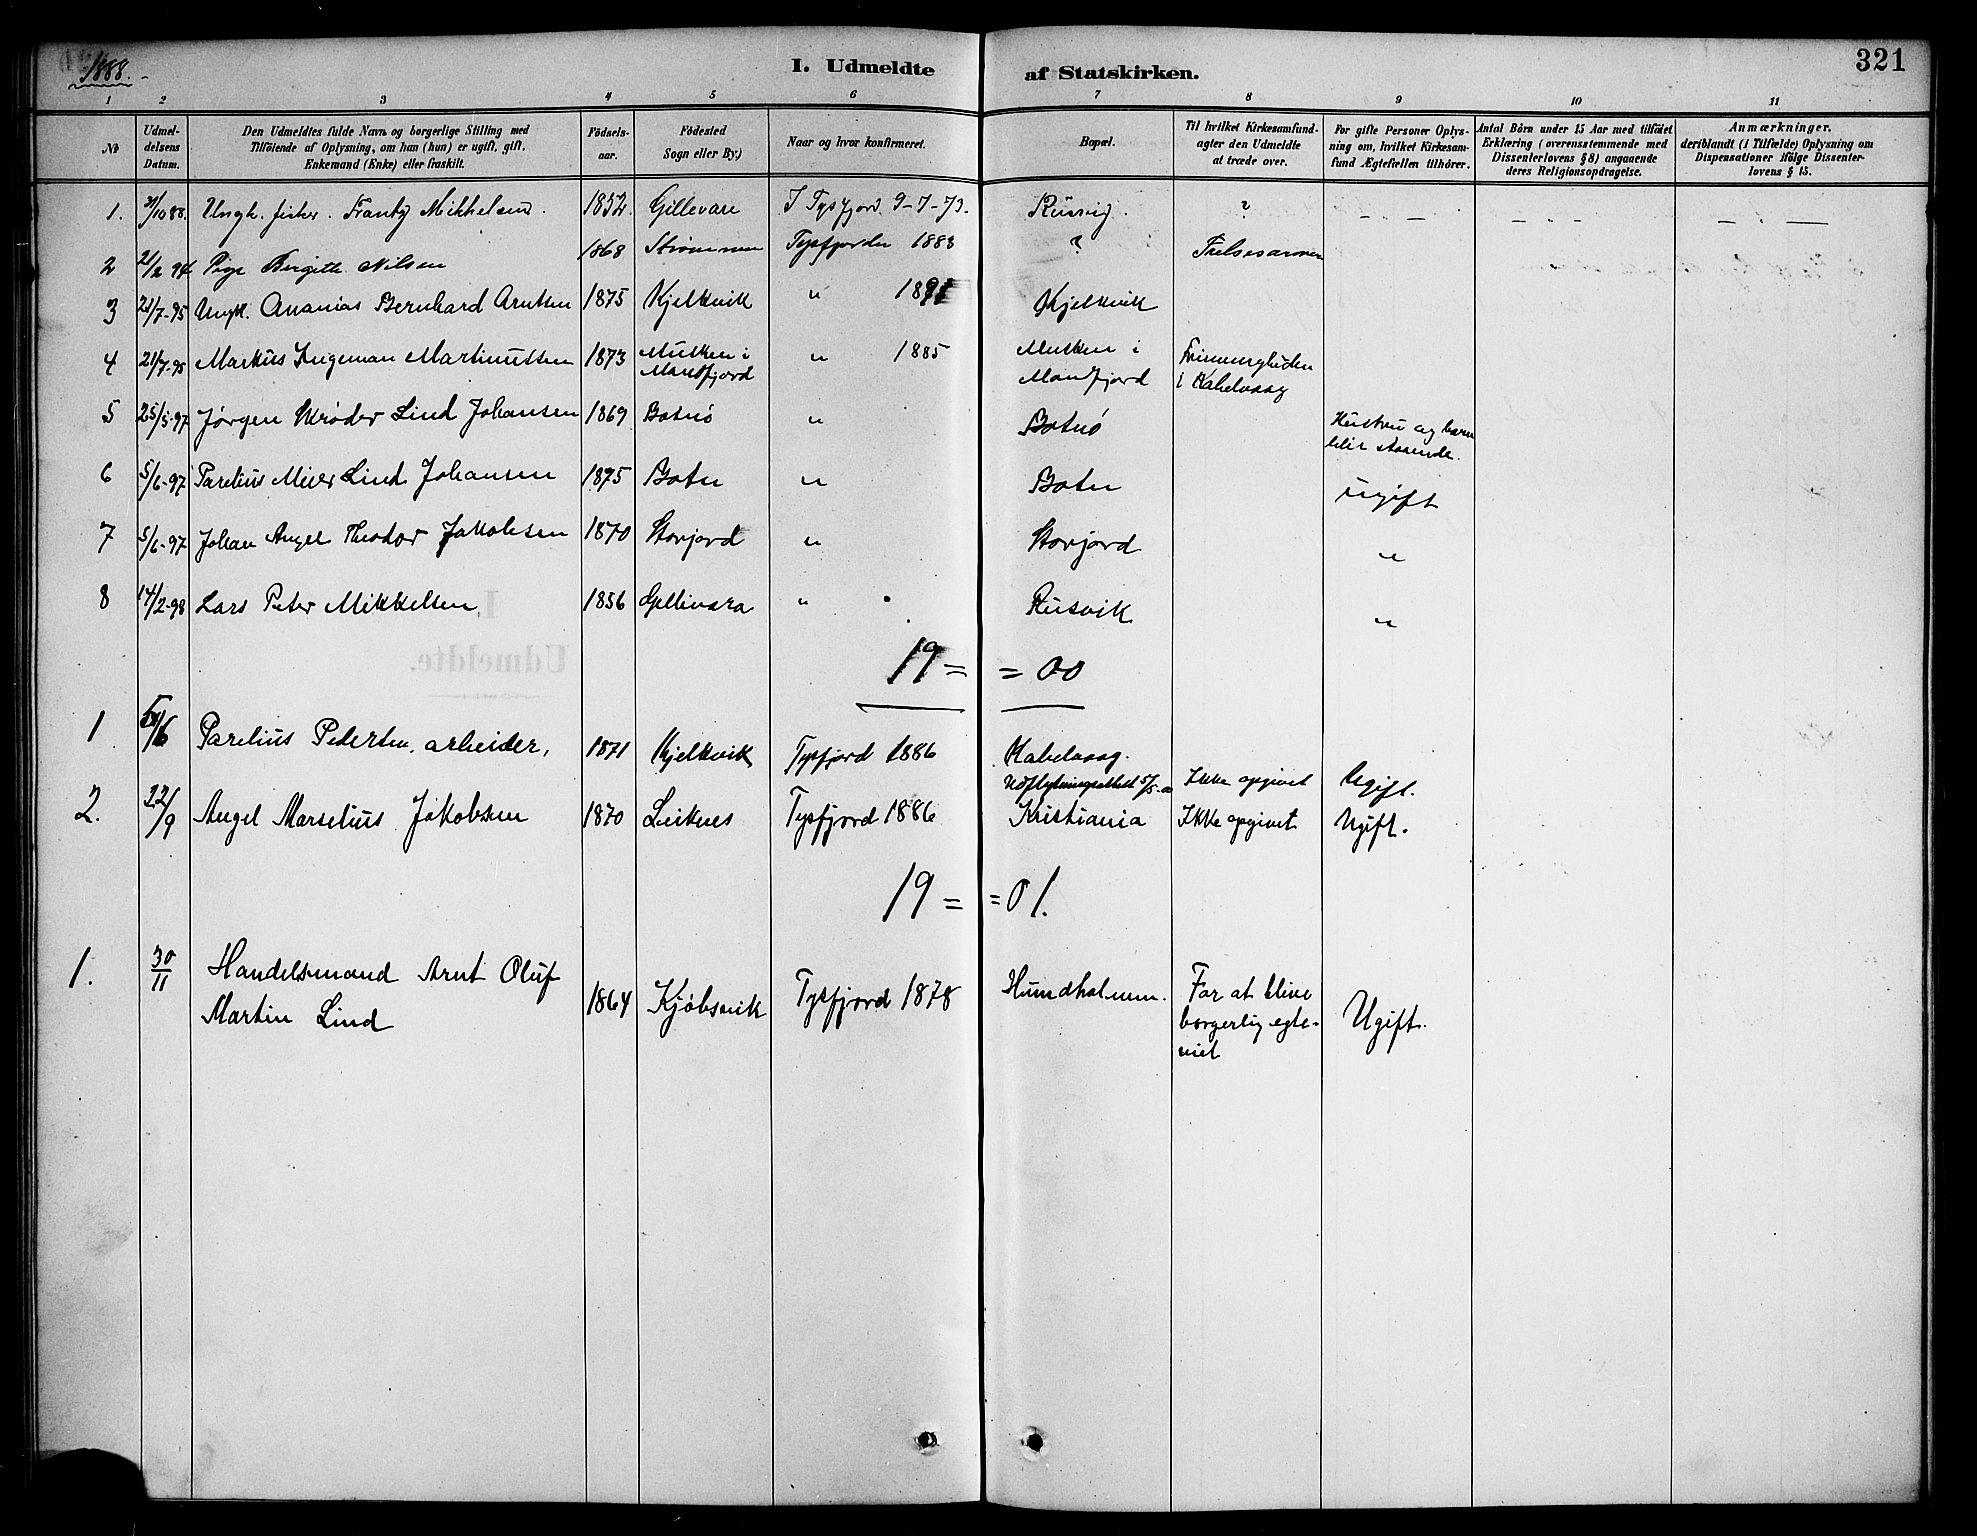 1888.
I. Udmeldte af Statskirken.
321
1 2 3 4 5 6 7 8 9 10 11
№
Udmel-
delsens
Datum.
Den Udmeldtes fulde Navn og borgerlige Stilling med
Tilføiende af Oplysning, om han (hun) er ugift, gift,
Enkemand (Enke) eller fraskilt.
Fødsels-
aar.
Fødested
Sogn eller By.)
Naar og hvor konfirmeret.
Bopæl.
Til hvilket Kirkesamfund-
agter den Udmeldte
at træde over.
For gifte Personer Oplys-
ning om, hvilket Kirkesam-
fund Ægtefællen tilhører.
Antal Börn under 15 Aar med tilföiet
Erklæring (overensstemmende med
Dissenterlovens § 8) angaaende
deres Religionsopdragelse.
Anmærkninger,
deriblandt (i Tilfælde) Oplysning om
Dispensationer ifölge Dissenter-
lovens § 15.
1. 31/10 88. Ungk. fisker. Frantz Mikkelsen. 1852. Gillevare I Tysfjord 9-7-73. Rusvig. ? – – – – – –
2 21/2 94 Pige Bergitte Nilsen 1868 Strømmen Tysfjorden 1883 ? Frelsesarmeen
3 21/7-95 Ungk. Ananias Bernhard Arntsen 1875 Kjelkvik " 1891 Kjelkvik
4 21/7-95 Markus Ingeman Martinussen 1873 Musken i " 1885 Musken i
Mandfjord Manfjord i Kabelvaag
5 25/5-97 Jørgen Krøder Lind Johansen 1869 Botnø " Botnø Hustru og barn
blir staaende.
6 5/6-97 Parelius Meier Lind Johansen 1875 Botn " Botn ugift
7 5/6-97 Johan Angel Theodor Jakobsen 1870 Storjord " Storjord "
8 14/2-98 Lars Peter Mikkelsen 1856 Gellivara " Rusvik "
19 = = 00
1 5/6 Parelius Pedersen, arbeider, 1871 Kjelkvik Tysfjord 1886 Kabelvaag.
Udflytningsattest 5/5-00 Ikke opgivet Ugift.
2. 22/9 Angel Marselius Jakobsen 1870 Leiknes Tysfjord 1886 Kristiania Ikke opgivet Ugift.
19 = = 01.
1. 30/11 Handelsmand Arnt Oluf
Martin Lind 1864 Kjøbsvik Tysfjord 1878 Hundholmen. For at blive
borgerlig egte-
viet Ugift.
I.
Udmeldte.